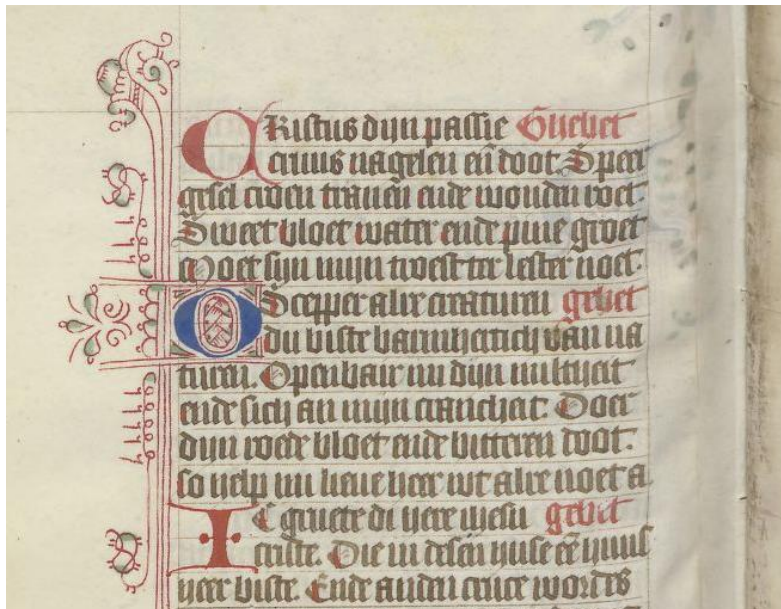 CRistus dijn passie Ghebet
cruus nagelen en̄ doot. Speer
gesel croen traueń ende wonden roet.
Sweet bloet water ende pine groet
Moet sijn mijn troest ter lester noet.
O Scepper alre creaturen gebet
du biste barmhertich van na
turen. Openbair mi dijn miltheit
ende sich an mijn crancheit. Doer
dijn roede bloet ende bitteren doot.
so help mi lieue heer wt alre noet a
IC gruete di here ihesu gebet
criste. Die in desen huse eē huus
heer biste. Ende anden cruce words